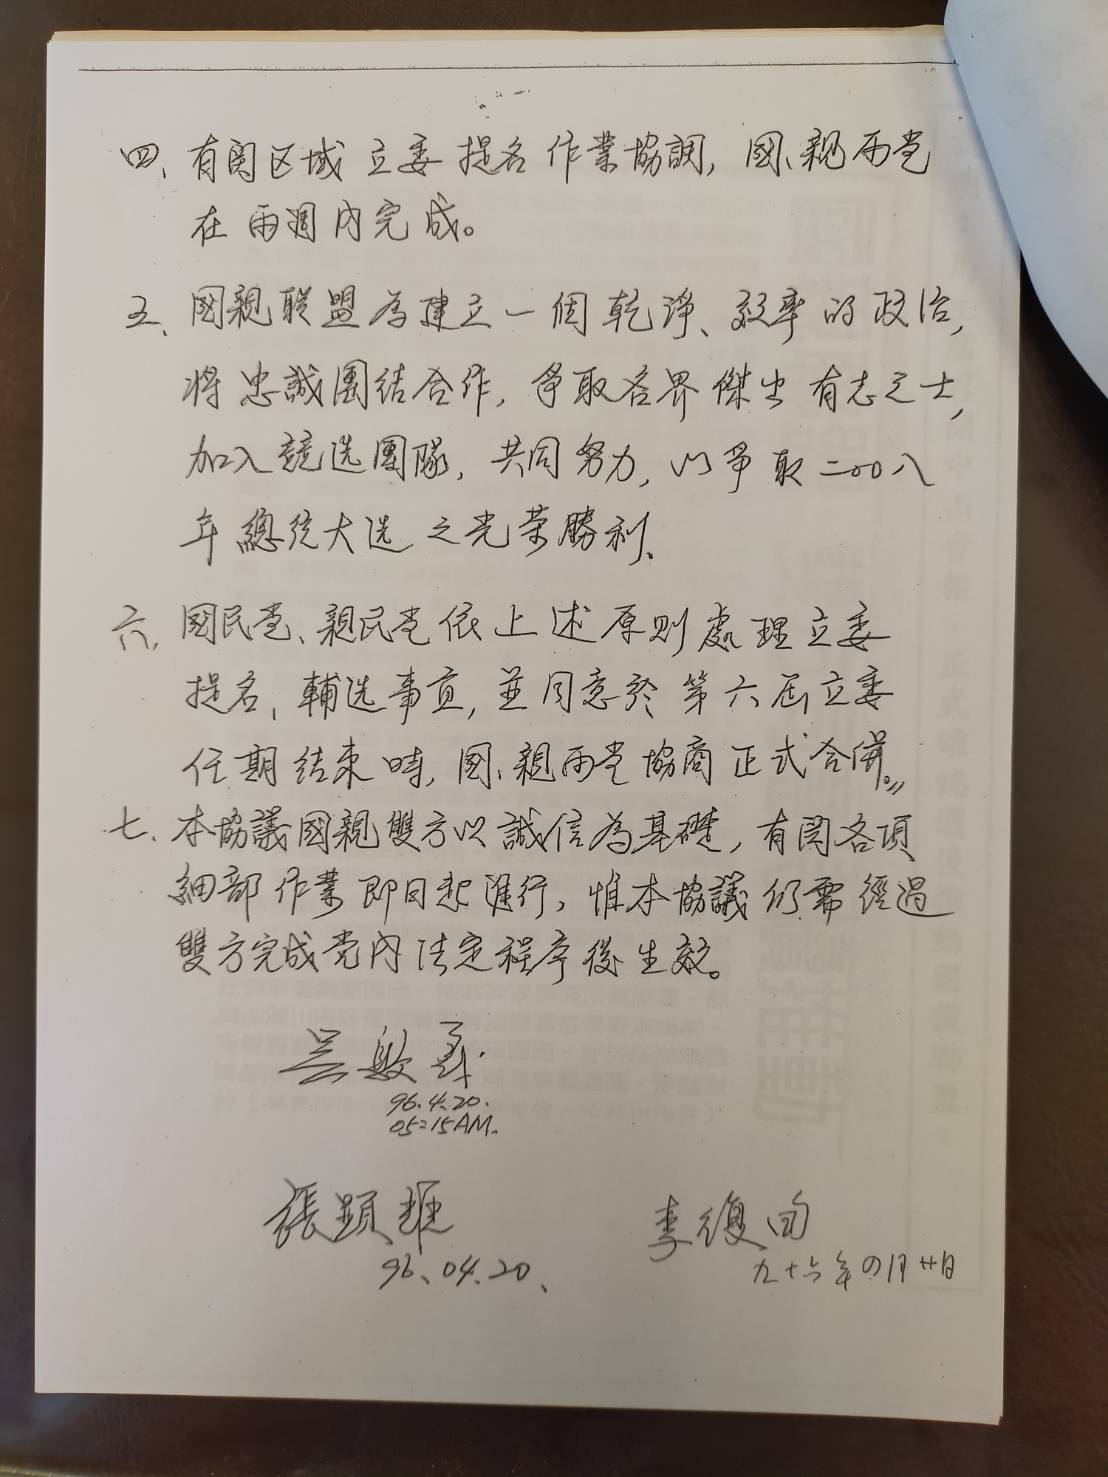 四、有関区域立委提名作業協調,國、親両党
在両週內完成。
五、國親联盟為建立一個乾淨、效率的政治,
将忠誠團結合作,爭取各界傑出有志之士,
加入競选團隊,共同努力,以爭取二00八
年總统大选之光荣勝利、
六、國民党、親民党依上述原則處理立委
提名、輔选事宜,並同意於第六屆立委
任期結束時,國、親両党協商正式合併。
七、本協議國親雙方以誠信為基礎,有関各項
細部作業即日起進行,惟本協議仍需經過
雙方完成党內法定程序後生效。
吳敦義
96.4.20.
05:15AM.
張顯耀
96、04.20、
李復甸
九十六年四月廿日